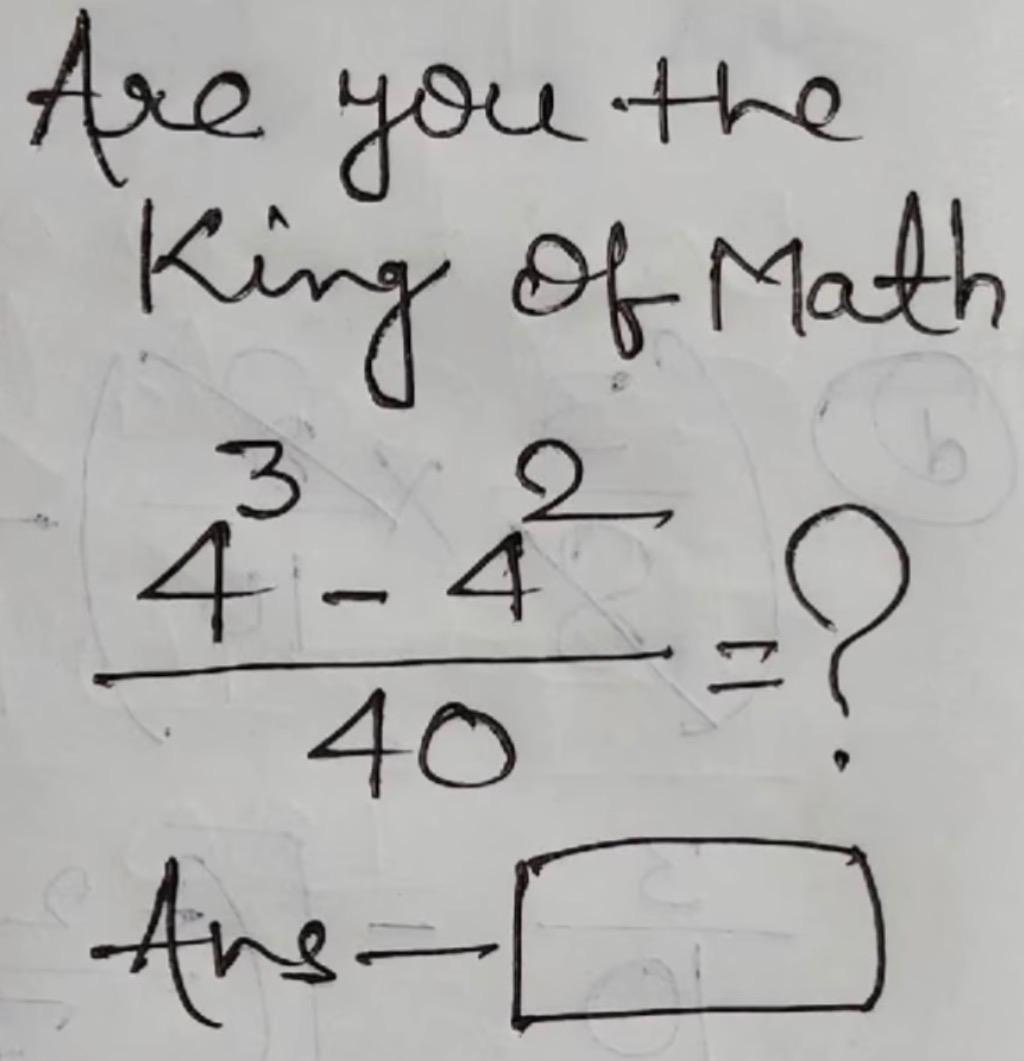 Are you the
King Of Math
4³ - 4²
40
= ?
Ans —